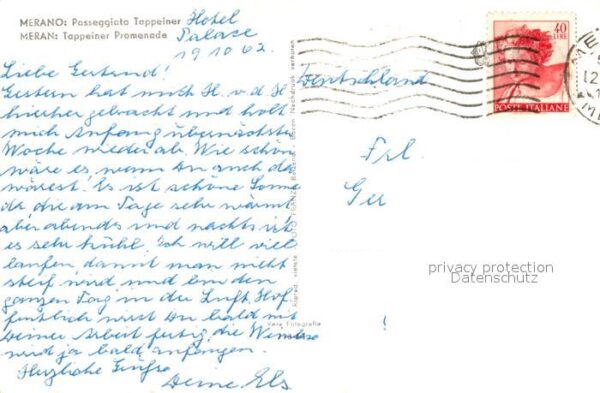 MERANO: Passeggiata Tappeiner
MERAN: Tappeiner Promenade
Hotel
Palace
19.10.62.
Liebe Gertrud!
Gestern hat mich H. v. d. H.
hierher gebracht und holt
mich Anfang übernächster
Woche wieder ab. Wie schön
wäre es, wenn Du auch da
wärest. Es ist schöne Sonne
da die am Tage sehr wärmt
aber abends und nachts ist
es sehr kühl. Ich will viel
laufen damit man nicht
steif wird und bin den
ganzen Tag in der Luft. Hof-
fentlich wirst Du bald mit
Deiner Arbeit fertig, die
wird ja bald anfangen.
Herzliche Grüsse
Deine Els
Deutschland
Frl.
Ger
!
Vera Fotografia
40
LIRE
POSTE ITALIANE
privacy protection
Datenschutz